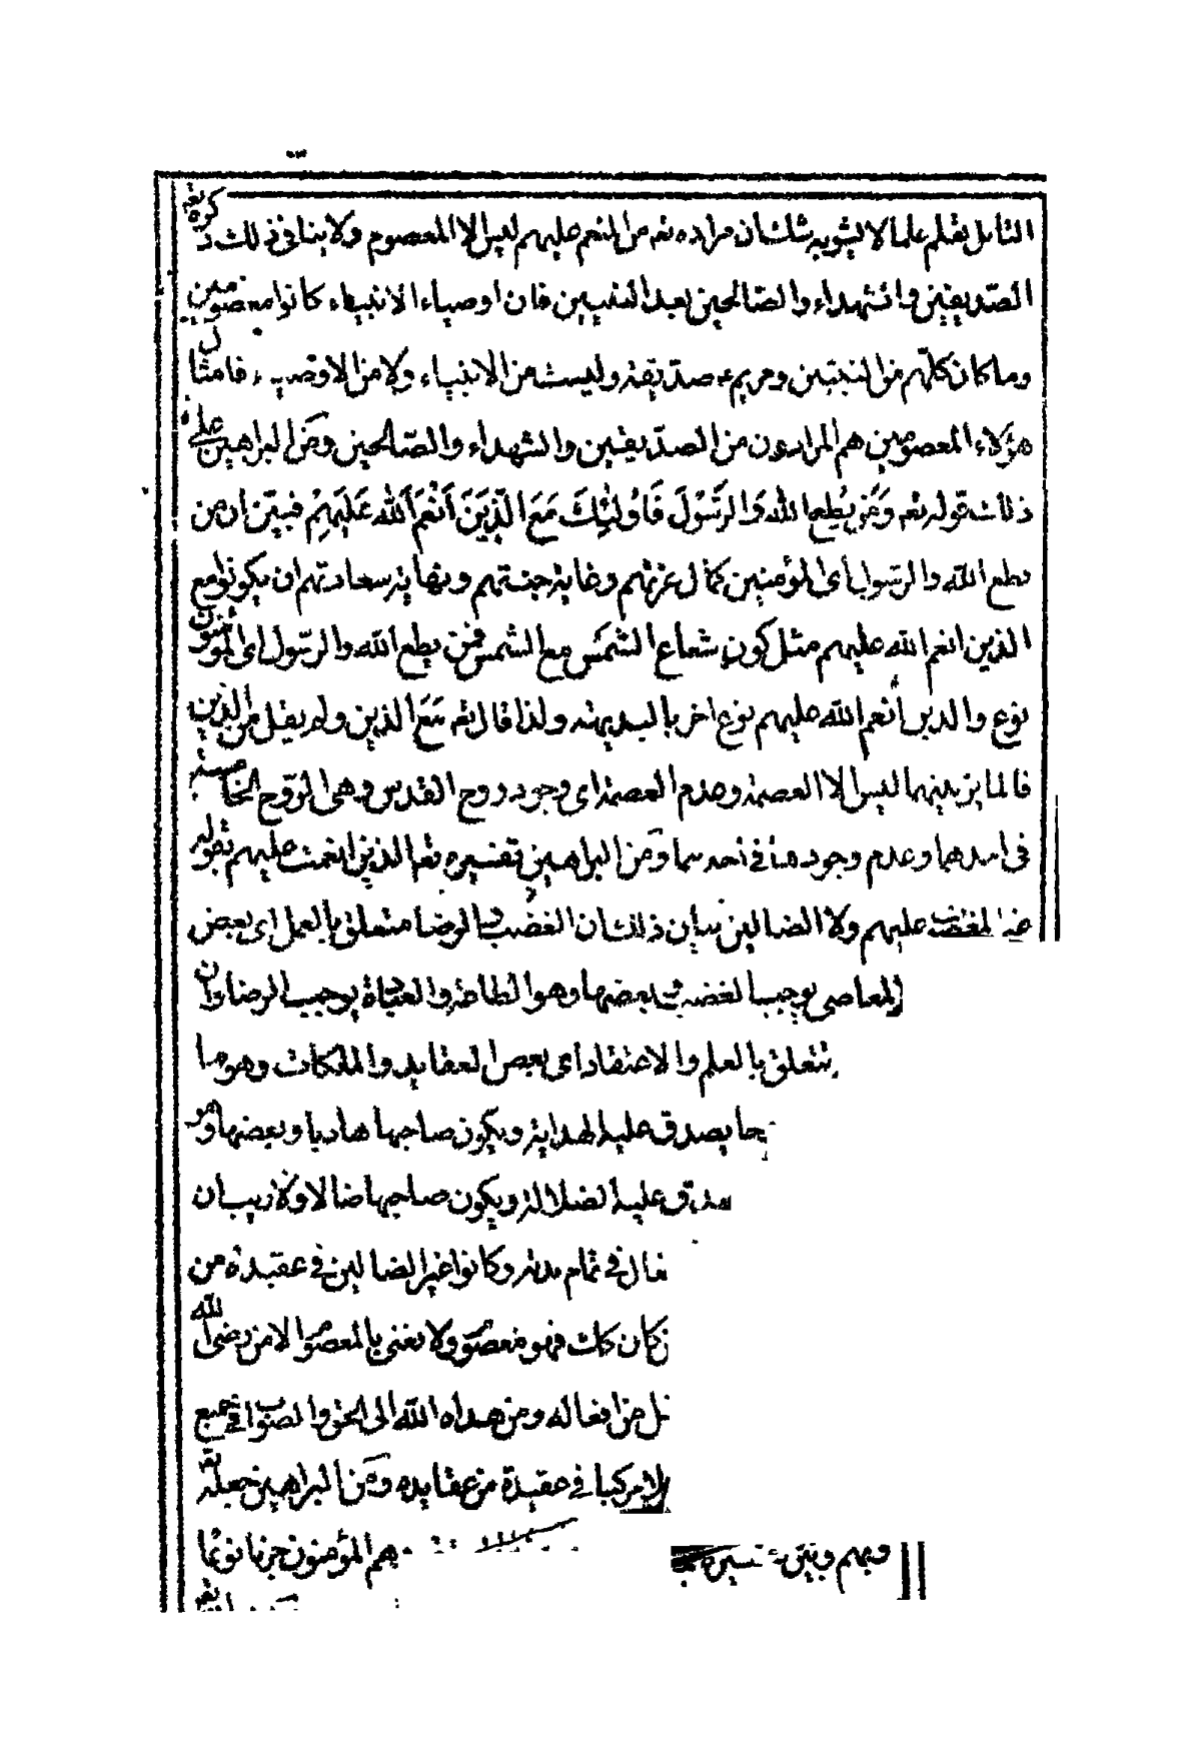 التأمل تعلم علما لا يشوبه شك ان مراده تعه من المنعم عليهم ليس الا المعصوم ولا ينافى ذلك ذكره تعه
الصديقين والشهداء والصالحين بعد النبيين فان اوصياء الانبياء كانوا معصومين
وما كان كلهم من النبيين ومريم ع صديقة وليست من الانبياء ولا من الاوصياء فامثال
هؤلاء المعصومين هم المرادون من الصديقين والشهداء والصالحين ومن البراهين على
ذلك قوله تعه وَمَن يُطِعِ اللهَ وَالرَّسُولَ فَاُولئِكَ مَعَ الَّذِينَ اَنْعَمَ اللهُ عَلَيهِمْ فبين ان من
يطع الله والرسول اى المؤمنين كمال عزتهم وغاية جنتهم ونهاية سعادتهم ان يكونوا مع
الذين انعم الله عليهم مثل كون شعاع الشمس مع الشمس فمن يطع الله والرسول اى المؤمنون
نوع والذين أنعم الله عليهم نوع اخر بالبديهة ولذا قال تعه مَعَ الذين ولم يقل من الذين
فالمايز بينهما ليس الا العصمة وعدم العصمة اى وجود روح القدس وهى الروح الخامسة
فى احدهما وعدم وجودها فى احدهما ومن البراهين تفسيره تعه الذين انعمت عليهم بقوله
المغضوب عليهم ولا الضالين بيان ذلك ان الغضب والرضا متعلق بالعمل اى بعض
المعاصى يوجب الغضب وبعضها وهو الطاعة والعبادة يوجب الرضا وان
يتعلق بالعلم والاعتقاد اى بعض العقايد والملكات وهو ما
يصدق عليه الهداية ويكون صاحبها هاديا وبعضها وهو
عليه الضلالة ويكون صاحبها ضالا ولا ريب ان
فى تمام مدته وكانوا غير الضالين فى عقيدة من
كان كك فهو معصوم ولا نعنى بالمعصوم الا من رضى الله
من افعاله ومن هداه الله الى الحق والصواب فى جميع
فى عقيدة من عقايده ومن البراهين جعله تعه
وبين تفسيره هم المؤمنون حزبا نوعا